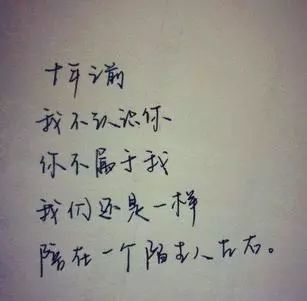 十年之前
我不认识你
你不属于我
我们还是一样
陪在一个陌生人左右。